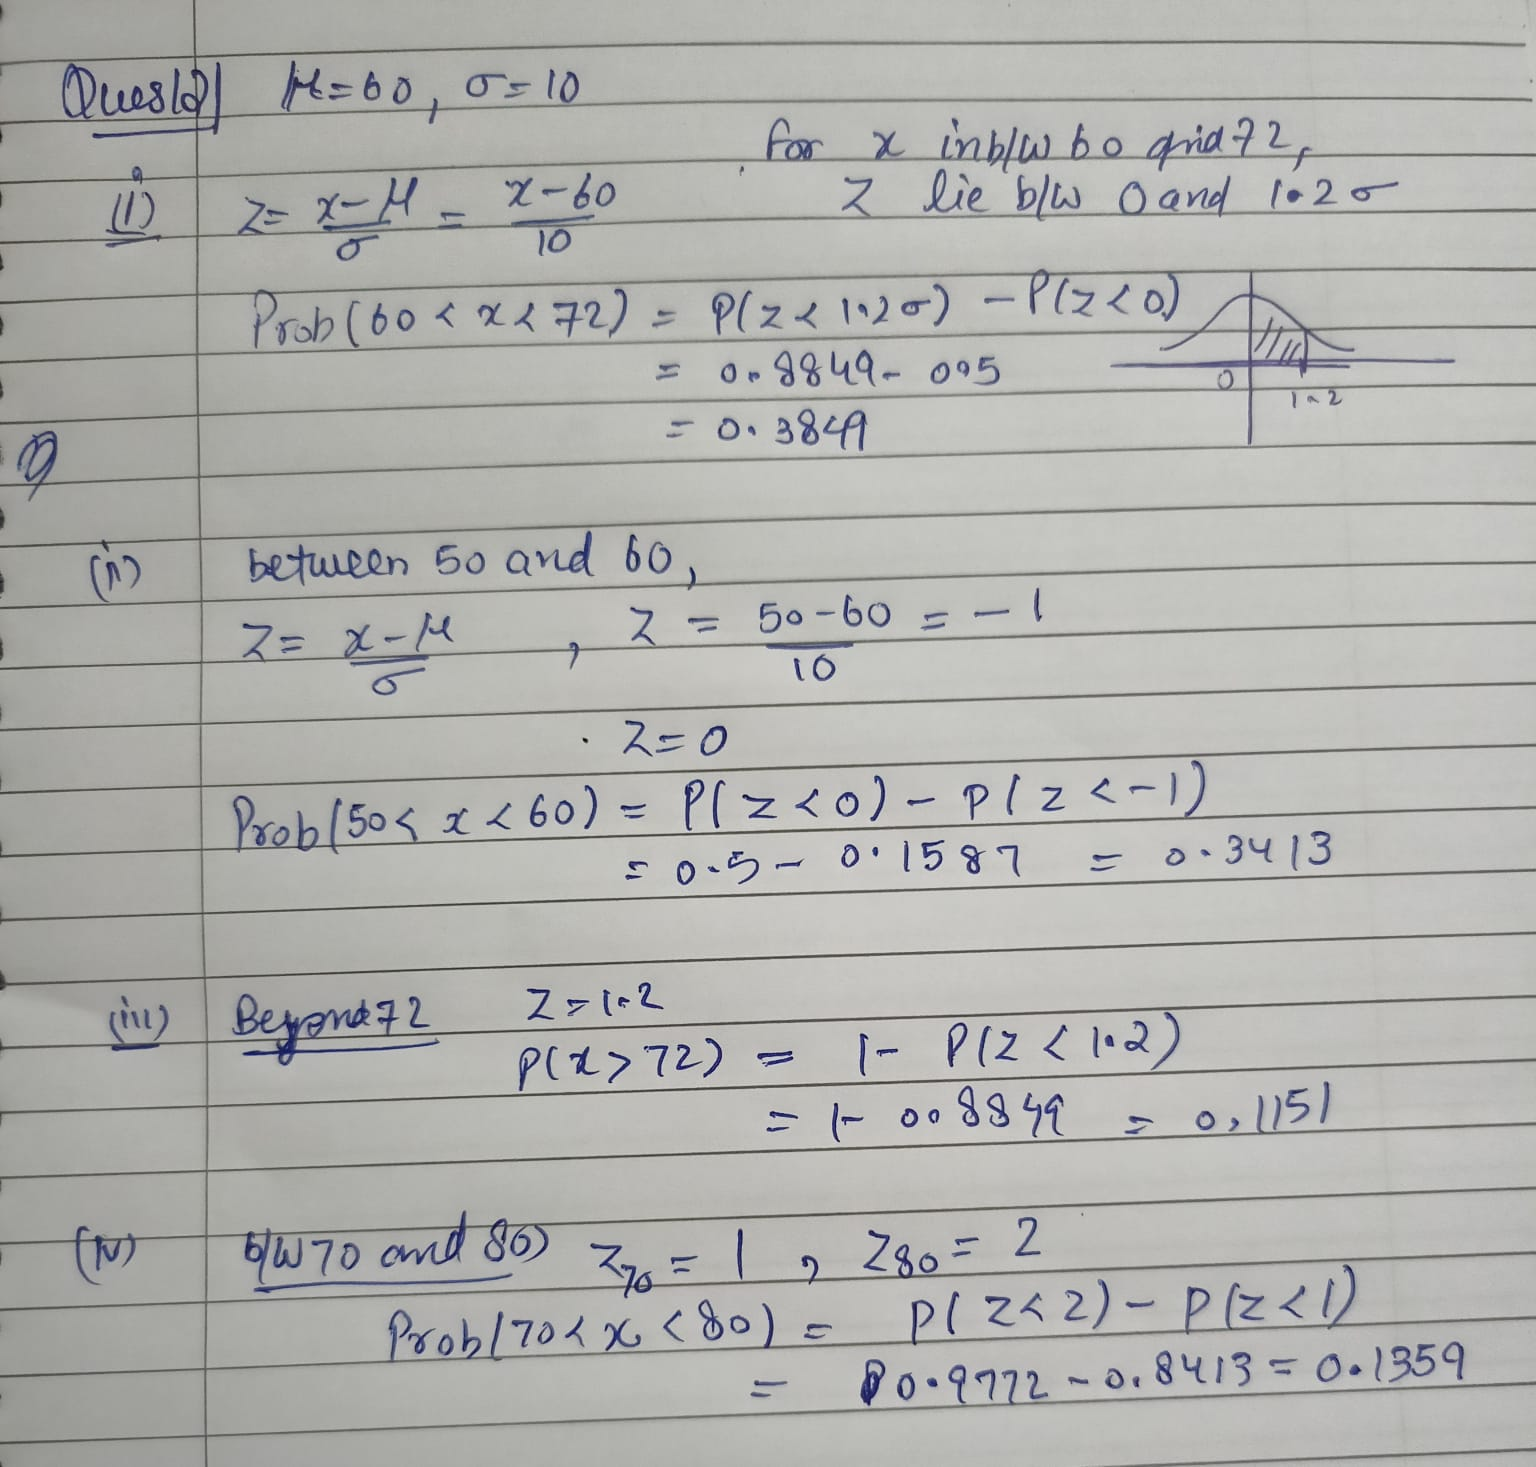 Ques12| μ=60, σ=10
(i) z= x-μ/σ = x-60/10
for x in b/w 60 and 72,
z lie b/w 0 and 1.2σ
Prob(60 < x < 72) = P(z < 1.2σ) - P(z<0)
= 0.8849 - 0.5
= 0.3849
0
1.2
(ii) between 50 and 60,
z= x-μ/σ , z = 50-60/10 = -1
z=0
Prob(50< x < 60) = P(z <0) - P(z < -1)
= 0.5 - 0.1587 = 0.3413
(iii) Beyond 72 z=1.2
P(x > 72) = 1- P(z < 1.2)
= 1- 0.8849 = 0.1151
(iv) b/w 70 and 80 z70 = 1 , z80 = 2
Prob(70< x <80) = P(z<2) - P(z<1)
= 0.9772 - 0.8413 = 0.1359